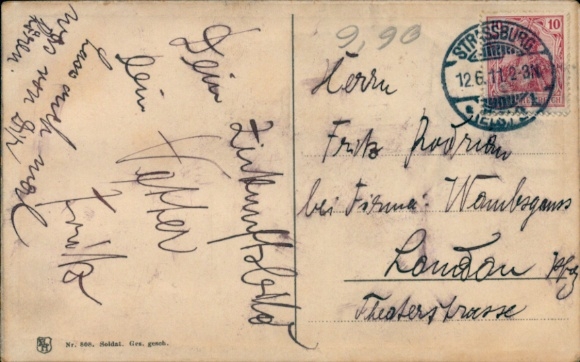 9,90
10
STRASSBURG
12.6.11. 2-3N
Herrn
Fritz Rodrian
bei Firma: Wambsganss
Landau Pfalz
Theaterstrasse
Dein
Dein
Vetter
Fritz
Lass auch mal
was von Dir
hören.
Nr. 900. Soldat. Ges. gesch.